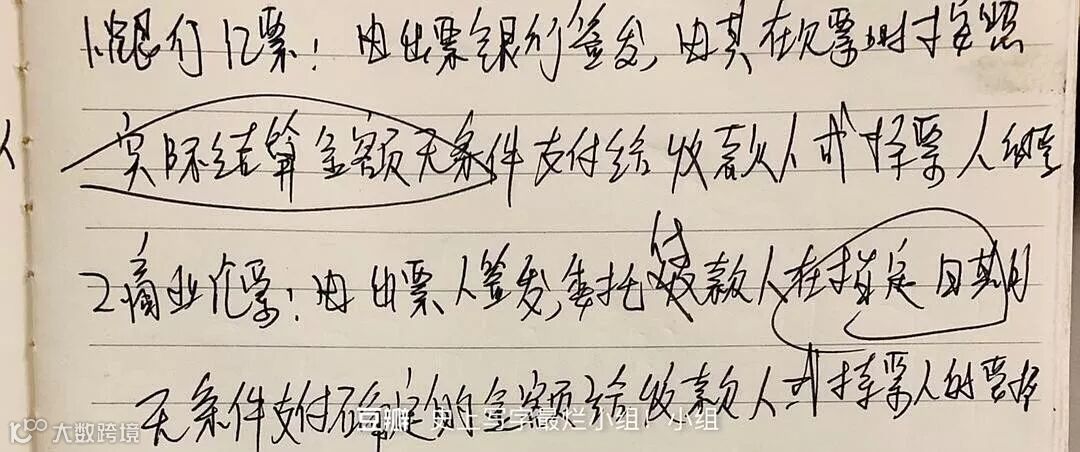 1.银行汇票：由出票银行签发，由其在见票时按照
实际结算金额无条件支付给收款人或持票人的票
2商业汇票：由出票人签发，委托付款人在指定日期
无条件支付确定的金额给收款人或持票人的票据
豆瓣 史上写字最烂小组 小组
大数跨境